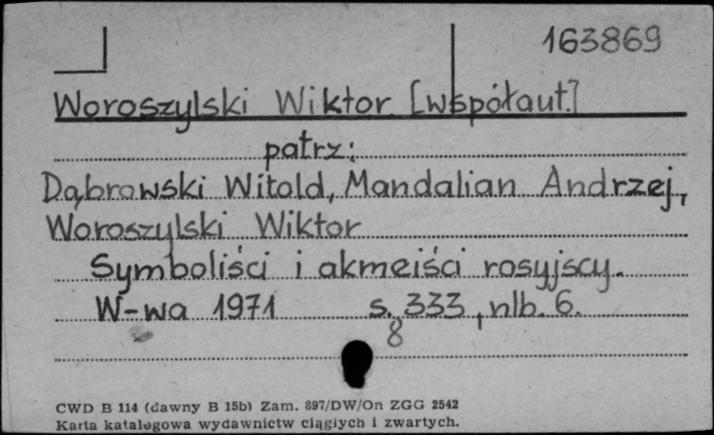 163869
Woroszylski Wiktor [współaut.]
patrz:
Dąbrowski Witold, Mandalian Andrzej,
Woroszylski Wiktor
Symboliści i akmeiści rosyjscy.
W-wa 1971 s. 333, nlb. 6.
8
CWD B 114 (dawny B 15b) Zam. 897/DW/On ZGG 2542
Karta katalogowa wydawnictw ciągłych i zwartych.